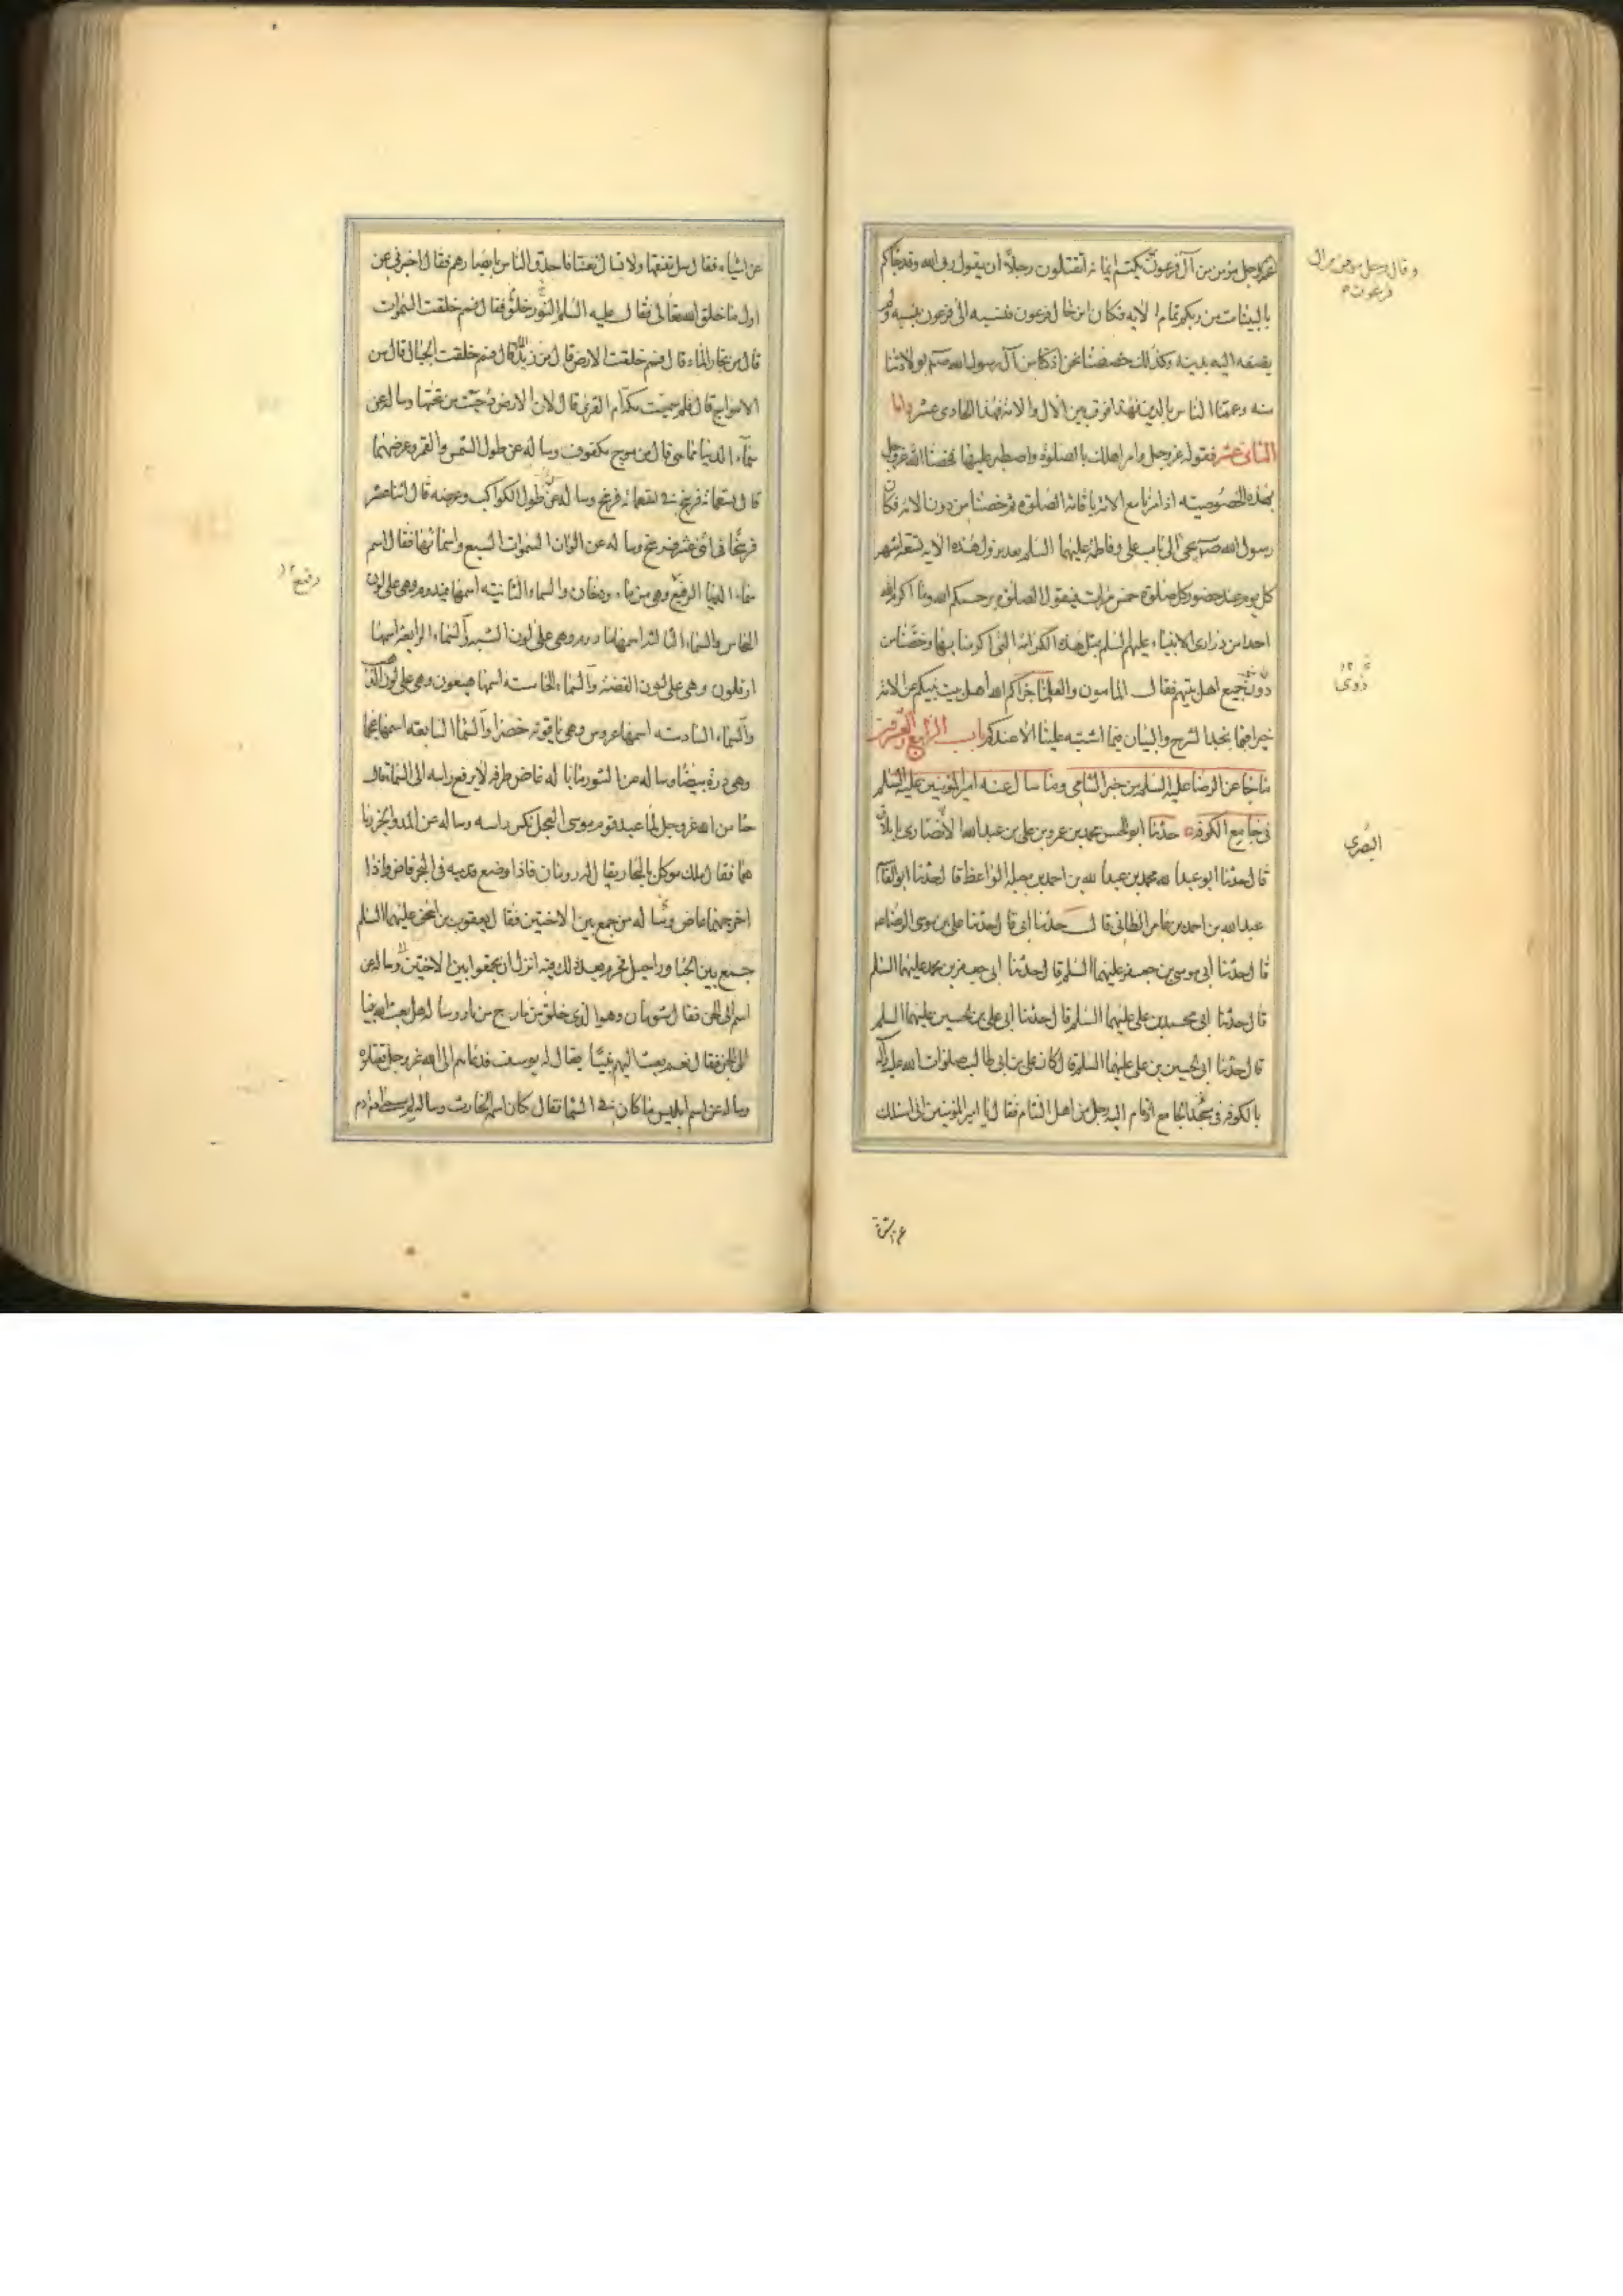 عزوجل مؤمن من آل فرعون يكتم ايمانه اتقتلون رجلاً ان يقول ربى الله وقد جاءكم
وقال رجل مومن من ال
فرعون
بالبينات من ربكم تمام الايه فكان ابن خال فرعون فنسبه الى فرعون بنسبه ولم
يضفه اليه بدينه وكذلك خصصنا نحن اذ كنا من آل رسول الله صلعم بولادتنا
منه وعممنا الناس بالدين فهذا فرق بين الال والامة فهذا الحادى عشر واما
الثانى عشر فقوله عزوجل وامر اهلك بالصلوة واصطبر عليها فخصنا الله عزوجل
بهذه الخصوصيته اذ امرنا مع الامة باقامة الصلوة ثم خصنا من دون الامة فكان
رسول الله ص يجئ الى باب على وفاطمة عليهما السلم بعد نزول هذه الاية تسعة اشهر
كل يوم عند حضور كل صلوة خمس مرات فيقول الصلوة يرحمكم الله وما اكرم الله
احدا من ذرارى الانبياء عليهم السلم بمثل هذه الكرامة التى اكرمنا بها وخصنا من
ذوى
دون جميع اهل بيتهم فقال المامون والعلما جزاكم الله اهل بيت نبيكم عن الامة
خيرا فما نجد الشرح والبيان فيما اشتبه علينا الا عندكم باب الرابع والعشرون
ما جا عن الرضا عليه السلم من خبر الشامى وما سال عنه امير المؤمنين عليه السلم
فى جامع الكوفه حدثنا ابو الحسن محمد بن عمرو بن على بن عبد الله الانصارى بايلاق
البصرى
قال حدثنا ابو عبد الله محمد بن عبد الله بن احمد بن جبلة الواعظ قال حدثنا ابو القاسم
عبد الله بن احمد بن عامر الطائى قال حدثنا ابى قال حدثنا على بن موسى الرضا
قال حدثنا ابى موسى بن جعفر عليهما السلم قال حدثنا ابى جعفر بن محمد عليهما السلم
قال حدثنا ابى محمد بن على عليهما السلم قال حدثنا ابى على بن الحسين عليهما السلم
قال حدثنا ابى الحسين بن على عليهما السلم قال كان على بن ابى طالب صلوات الله عليه
بالكوفه فى مسجد الجامع اذ قام اليه رجل من اهل الشام فقال يا امير المؤمنين انى اسئلك
عن اشياء فقال سل تفقها ولا تسال تعنتا فاحدق الناس بابصارهم فقال اخبرنى عن
اول ما خلق الله تعالى فقال عليه السلم النور خلق فقال فمم خلقت السموات
قال من بخار الماء قال فمم خلقت الارض قال من زبد الماء قال فمم خلقت الجبال قال من
الامواج قال فلم سميت مكة ام القرى قال لان الارض دحيت من تحتها وساله عن
سماء الدنيا مما هى قال من موج مكفوف وساله عن طول الشمس والقمر وعرضهما
قال تسعمائة فرسخ فى تسعمائة فرسخ وساله عن طول الكواكب وعرضه قال اثنا عشر
فرسخا فى اثنى عشر فرسخ وساله عن الوان السموات السبع واسمائها فقال اسم
سماء الدنيا الرفيع وهى من ماء ودخان والسماء الثانيته اسمها فيدوم وهى على لون
رفيع
النحاس والسماء الثالثة اسمها وهى على لون الشبه والسماء الرابعة اسمها
ارفلون وهى على لون الفضة والسماء الخامسته اسمها هيعون وهى على لون الذهب
والسماء السادسته اسمها عروس وهى ياقوته خضرا والسماء السابعته اسمها عجما
وهى درة بيضا وساله عن الثور ما باله غاض طرفه لا يرفع راسه الى السماء قال
حيا من الله عزوجل لما عبد قوم موسى العجل نكس راسه وساله عن المد والجزر ما
هما فقال ملك موكل بالبحار يقال له رومان فاذا وضع قدميه فى البحر فاض واذا
اخرجهما غاض وساله من جمع بين الاختين فقال يعقوب بن اسحق عليهما السلم
جمع بين حبار وراحيل فحرم بعد ذلك فيه انزل ان تجمعوا بين الاختين وساله عن
اسم ابى الجن فقال شومان وهو الذى خلق من مارج من نار وساله هل بعث الله نبيا
الى الجن فقال نعم بعث اليهم نبيّا يقال له يوسف فدعاهم الى الله عزوجل فقتلوه
وساله عن اسم ابليس ما كان فى السما فقال كان اسمه الحارث وساله لم سمى ادم